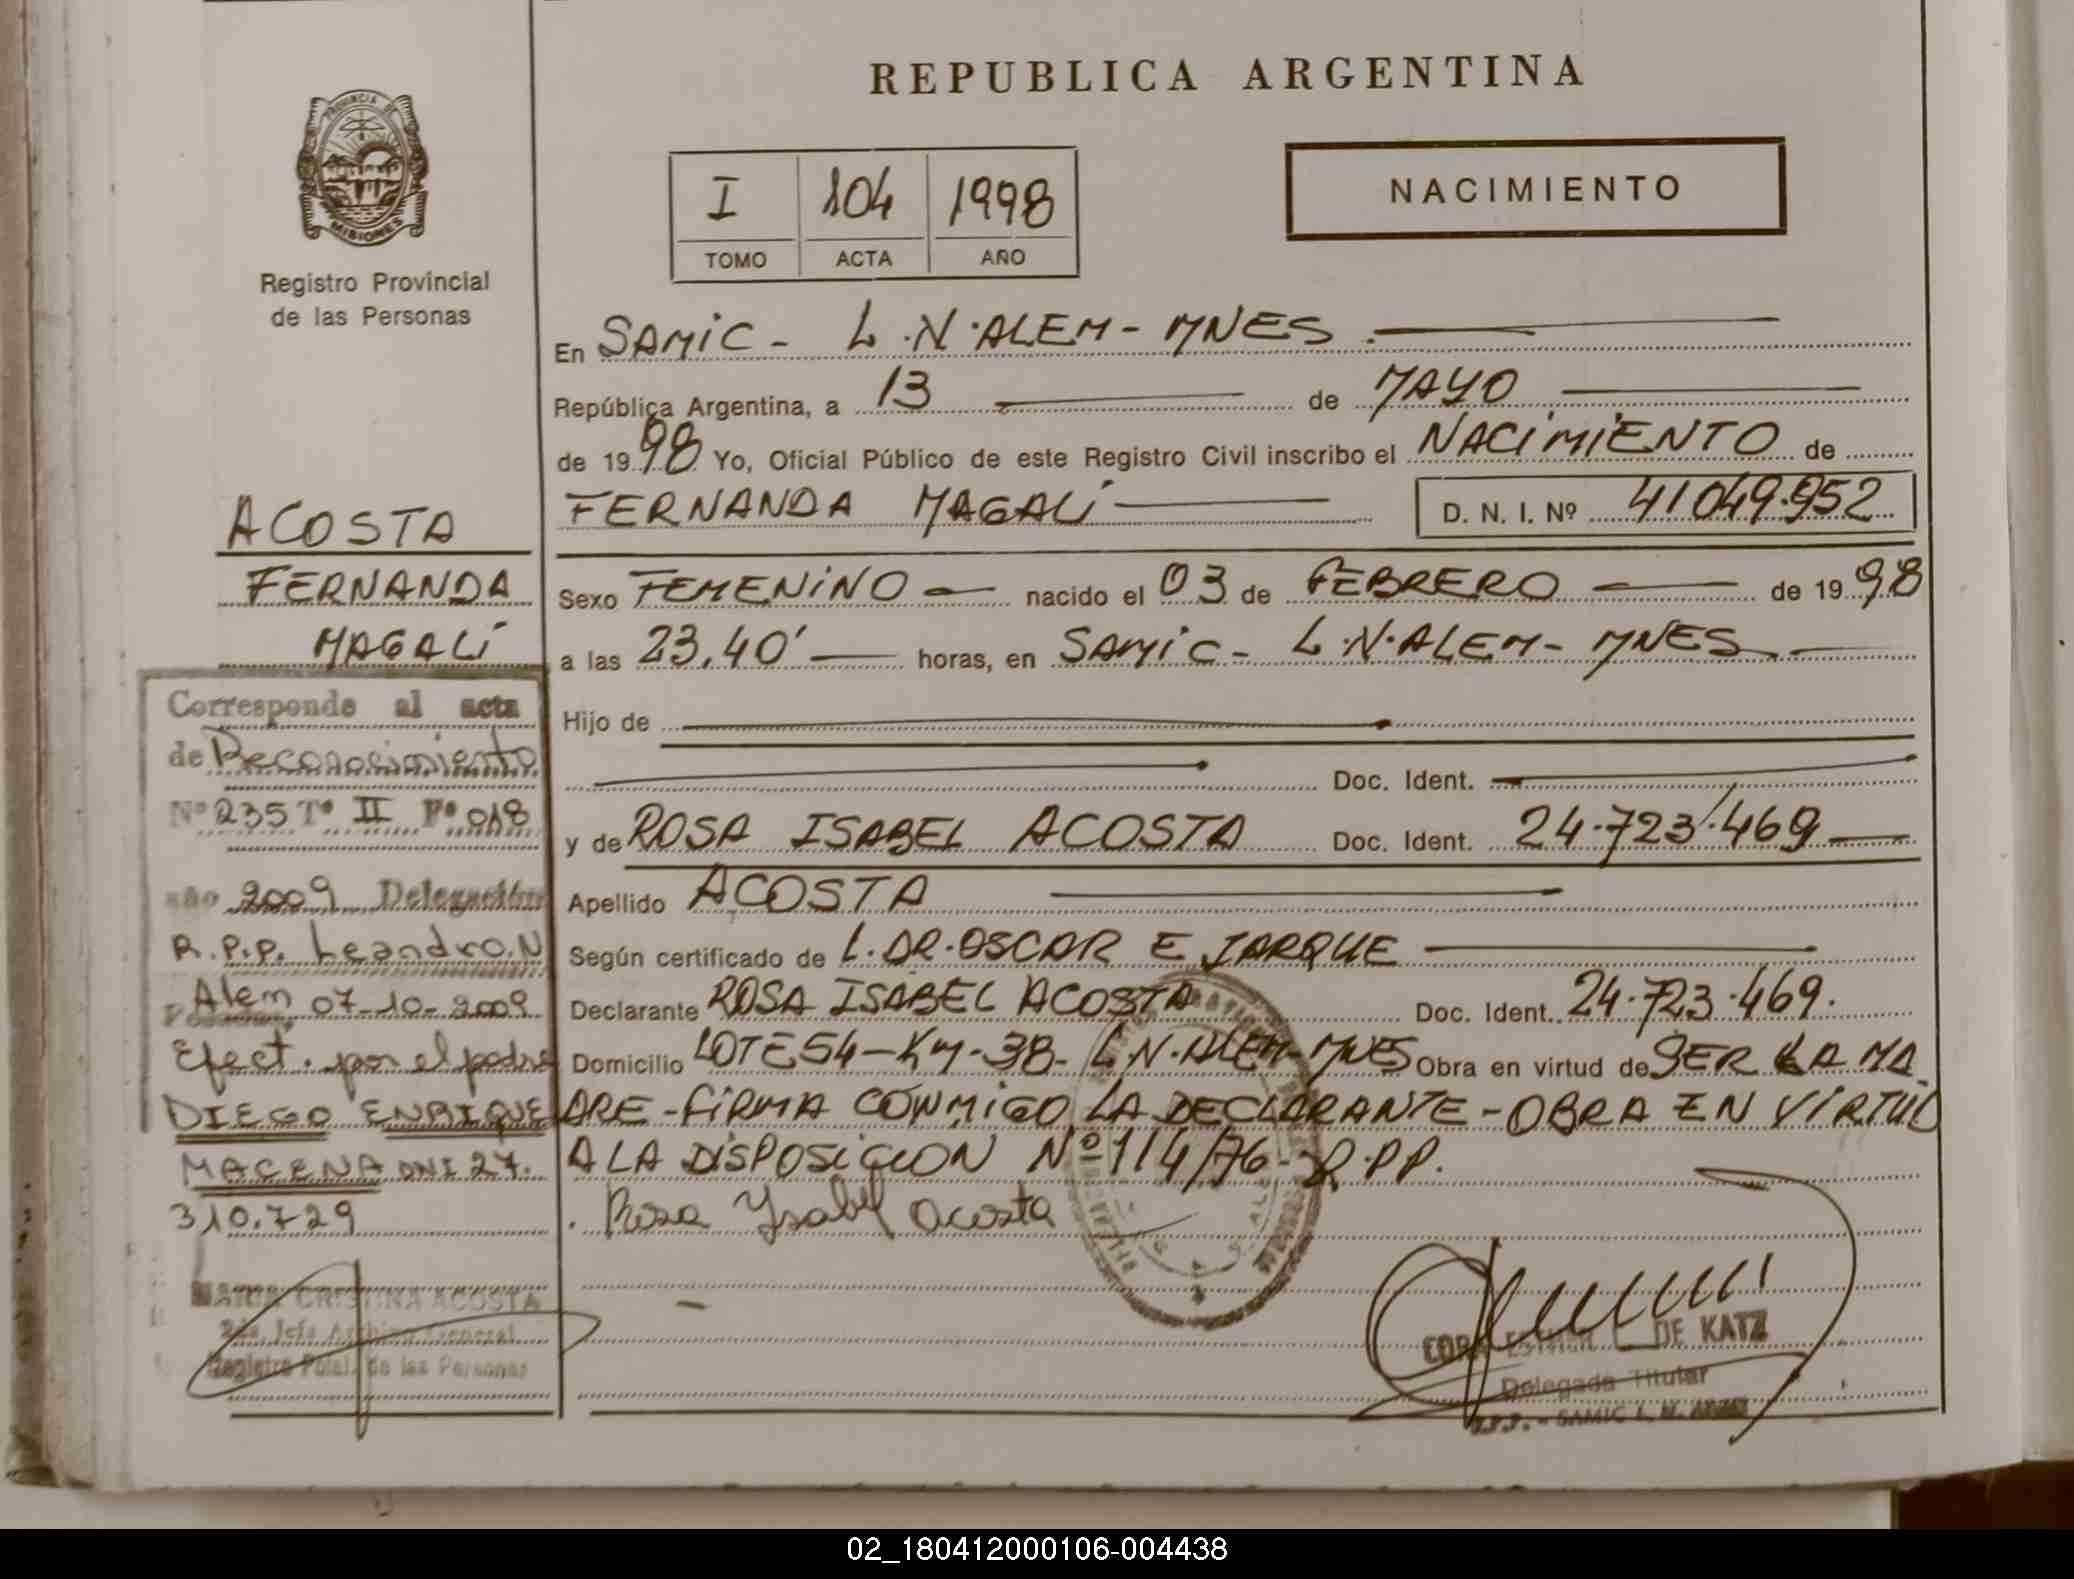 REPUBLICA ARGENTINA
PROVINCIA DE
MISIONES
Registro Provincial
de las Personas
I 104 1998
TOMO ACTA AÑO
NACIMIENTO
En SAMIC - L.N.ALEM - MNES.
República Argentina, a 13 de MAYO
de 1998 Yo, Oficial Público de este Registro Civil inscribo el NACIMIENTO de
FERNANDA MAGALÍ D. N. I. Nº 41049.952
Sexo FEMENINO nacido el 03 de FEBRERO de 1998
a las 23,40' horas, en SAMIC - L.N.ALEM - MNES
Hijo de
Doc. Ident.
y de ROSA ISABEL ACOSTA Doc. Ident. 24.723.469
Apellido ACOSTA
Según certificado de L. DR. OSCAR E JARQUE
Declarante ROSA ISABEL ACOSTA Doc. Ident. 24.723.469.
Domicilio LOTE 54 - KM - 38 - L.N.ALEM - MNES Obra en virtud de SER LA MA
DRE - FIRMA CONMIGO LA DECLARANTE - OBRA EN VIRTUD
A LA DISPOSICION Nº 114/76 - R.PP.
Rosa Ysabel acosta
CORA ESTHER DE KATZ
Delegada Titular
R.P.P. - SAMIC L. N. ALEM
ACOSTA
FERNANDA
MAGALÍ
Corresponde al acta
de Reconocimiento
Nº 235 Tº II Fº 018
año 2009 Delegación
R.P.P. Leandro.N
Alem 07-10-2009
Efect. por el padre
DIEGO ENRIQUE
MACENA DNI 27.
310.729
MARIA CRISTINA ACOSTA
2da. Jefa Archivo General
Registro Pcial. de las Personas
02_180412000106-004438